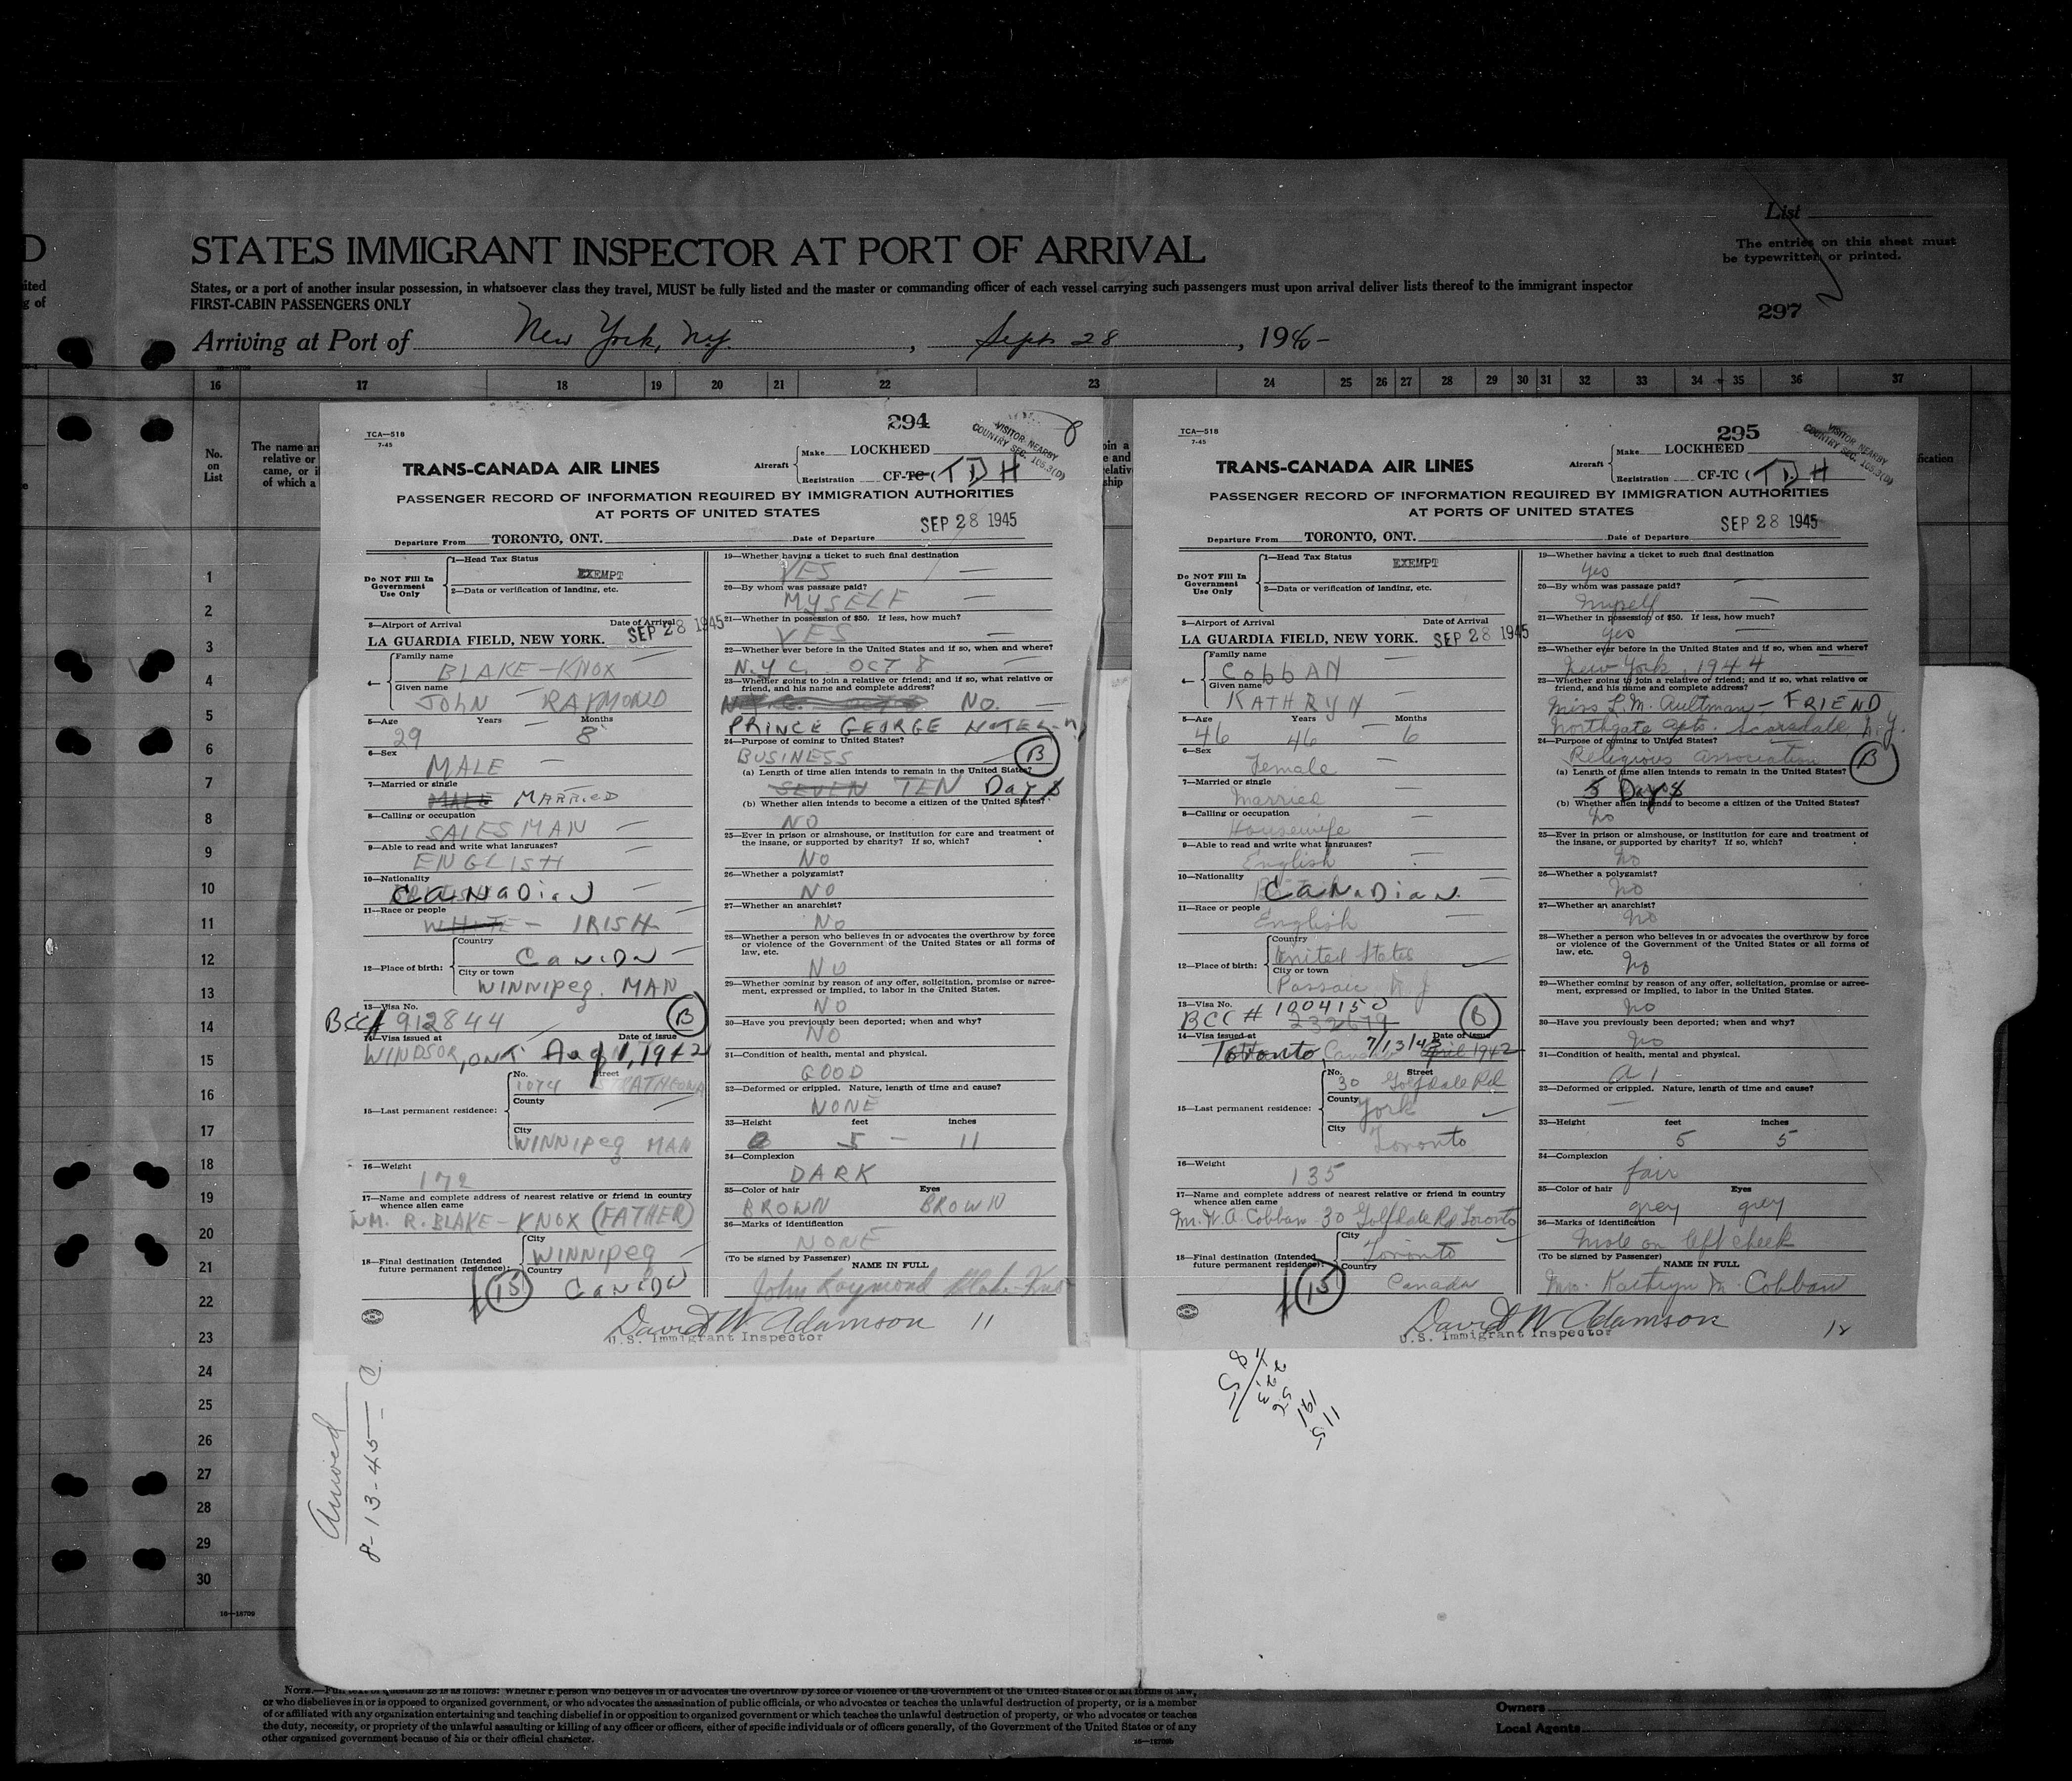 D
ited
g of
List
The entries on this sheet must
be typewritten or printed.
STATES IMMIGRANT INSPECTOR AT PORT OF ARRIVAL
States, or a port of another insular possession, in whatsoever class they travel, MUST be fully listed and the master or commanding officer of each vessel carrying such passengers must upon arrival deliver lists thereof to the immigrant inspector
FIRST-CABIN PASSENGERS ONLY
297
Arriving at Port of New York, N.Y. , Sept 28 , 194
16 17 18 19 20 21 22 23 24 25 26 27 28 29 30 31 32 33 34 35 36 37
No.
on
List
The name an
relative or
came, or i
of which a
1
2
3
4
5
6
7
8
9
10
11
12
13
14
15
16
17
18
19
20
21
22
23
24
25
26
27
28
29
30
16—18709
294
TCA—518
7-45
VISITOR NEARBY
COUNTRY SEC. 105.3(D)
TRANS-CANADA AIR LINES
Aircraft
Make LOCKHEED
Registration CF-TC (TDH
PASSENGER RECORD OF INFORMATION REQUIRED BY IMMIGRATION AUTHORITIES
AT PORTS OF UNITED STATES
SEP 28 1945
Departure From TORONTO, ONT. Date of Departure
Do NOT Fill In
Government
Use Only
1—Head Tax Status
EXEMPT
2—Data or verification of landing, etc.
3—Airport of Arrival Date of Arrival
LA GUARDIA FIELD, NEW YORK. SEP 28 1945
4— Family name
BLAKE-KNOX
Given name
JOHN RAYMOND
5—Age Years Months
29 8
6—Sex
MALE
7—Married or single
MALE MARRIED
8—Calling or occupation
SALESMAN
9—Able to read and write what languages?
ENGLISH
10—Nationality
CANADIAN
11—Race or people
WHITE - IRISH
12—Place of birth: Country
CANADA
City or town
WINNIPEG. MAN
13—Visa No.
BCC# 912844 B
14—Visa issued at Date of issue
WINDSOR, ONT Aug 1, 1942
15—Last permanent residence: No. Street
1074 STRATHCONA
County
City
WINNIPEG MAN
16—Weight
172
17—Name and complete address of nearest relative or friend in country
whence alien came
WM. R. BLAKE-KNOX (FATHER)
18—Final destination (Intended
future permanent residence): City
WINNIPEG
Country
15 CANADA
19—Whether having a ticket to such final destination
YES
20—By whom was passage paid?
MYSELF
21—Whether in possession of $50. If less, how much?
YES
22—Whether ever before in the United States and if so, when and where?
N.Y.C. OCT 8
23—Whether going to join a relative or friend; and if so, what relative or
friend, and his name and complete address?
NO.
PRINCE GEORGE HOTEL
24—Purpose of coming to United States?
BUSINESS B
(a) Length of time alien intends to remain in the United States?
SEVEN TEN Days
(b) Whether alien intends to become a citizen of the United States?
NO
25—Ever in prison or almshouse, or institution for care and treatment of
the insane, or supported by charity? If so, which?
NO
26—Whether a polygamist?
NO
27—Whether an anarchist?
NO
28—Whether a person who believes in or advocates the overthrow by force
or violence of the Government of the United States or all forms of
law, etc.
NO
29—Whether coming by reason of any offer, solicitation, promise or agree-
ment, expressed or implied, to labor in the United States.
NO
30—Have you previously been deported; when and why?
NO
31—Condition of health, mental and physical.
GOOD
32—Deformed or crippled. Nature, length of time and cause?
NONE
33—Height feet inches
5 - 11
34—Complexion
DARK
35—Color of hair Eyes
BROWN BROWN
36—Marks of identification
NONE
(To be signed by Passenger) NAME IN FULL
John Raymond Blake-Knox
David W. Adamson 11
U.S. Immigrant Inspector
295
TCA—518
7-45
VISITOR NEARBY
COUNTRY SEC. 105.3(D)
TRANS-CANADA AIR LINES
Aircraft
Make LOCKHEED
Registration CF-TC (TDH
PASSENGER RECORD OF INFORMATION REQUIRED BY IMMIGRATION AUTHORITIES
AT PORTS OF UNITED STATES
SEP 28 1945
Departure From TORONTO, ONT. Date of Departure
Do NOT Fill In
Government
Use Only
1—Head Tax Status
EXEMPT
2—Data or verification of landing, etc.
3—Airport of Arrival Date of Arrival
LA GUARDIA FIELD, NEW YORK. SEP 28 1945
4— Family name
CobbAN
Given name
KATHRYN
5—Age Years Months
46 46 6
6—Sex
Female
7—Married or single
Married
8—Calling or occupation
Housewife
9—Able to read and write what languages?
English
10—Nationality
CANADIAN.
11—Race or people
English
12—Place of birth: Country
United States
City or town
Passaic N.J.
13—Visa No.
BCC # 1004150
232679 B
14—Visa issued at Date of issue
Toronto, Canada 7/13/43 April 1942
15—Last permanent residence: No. Street
30 Golfdale Rd
County
York
City
Toronto
16—Weight
135
17—Name and complete address of nearest relative or friend in country
whence alien came
Mr. W.A. Cobban - 30 Golfdale Rd Toronto
18—Final destination (Intended
future permanent residence): City
Toronto
Country
15 Canada
19—Whether having a ticket to such final destination
Yes
20—By whom was passage paid?
Myself
21—Whether in possession of $50. If less, how much?
Yes
22—Whether ever before in the United States and if so, when and where?
New York, 1944
23—Whether going to join a relative or friend; and if so, what relative or
friend, and his name and complete address?
Miss L.M. Aultman - FRIEND
Northgate Apts. Scarsdale N.Y.
24—Purpose of coming to United States?
Religious association B
(a) Length of time alien intends to remain in the United States?
5 Days
(b) Whether alien intends to become a citizen of the United States?
No
25—Ever in prison or almshouse, or institution for care and treatment of
the insane, or supported by charity? If so, which?
No
26—Whether a polygamist?
No
27—Whether an anarchist?
No
28—Whether a person who believes in or advocates the overthrow by force
or violence of the Government of the United States or all forms of
law, etc.
No
29—Whether coming by reason of any offer, solicitation, promise or agree-
ment, expressed or implied, to labor in the United States.
No
30—Have you previously been deported; when and why?
No
31—Condition of health, mental and physical.
A 1
32—Deformed or crippled. Nature, length of time and cause?
33—Height feet inches
5 5
34—Complexion
fair
35—Color of hair Eyes
grey grey
36—Marks of identification
Mole on left cheek
(To be signed by Passenger) NAME IN FULL
Mrs. Kathryn M. Cobban
David W. Adamson
U.S. Immigrant Inspector
Arrived
8-13-45- C
or who disbelieves in or is opposed to organized government, or who advocates the assassination of public officials, or who advocates or teaches the unlawful destruction of property, or is a member
of or affiliated with any organization entertaining and teaching disbelief in or opposition to organized government or which teaches the unlawful destruction of property, or who advocates or teaches
the duty, necessity, or propriety of the unlawful assaulting or killing of any officer or officers, either of specific individuals or of officers generally, of the Government of the United States or of any
other organized government because of his or their official character.
Owners
Local Agents